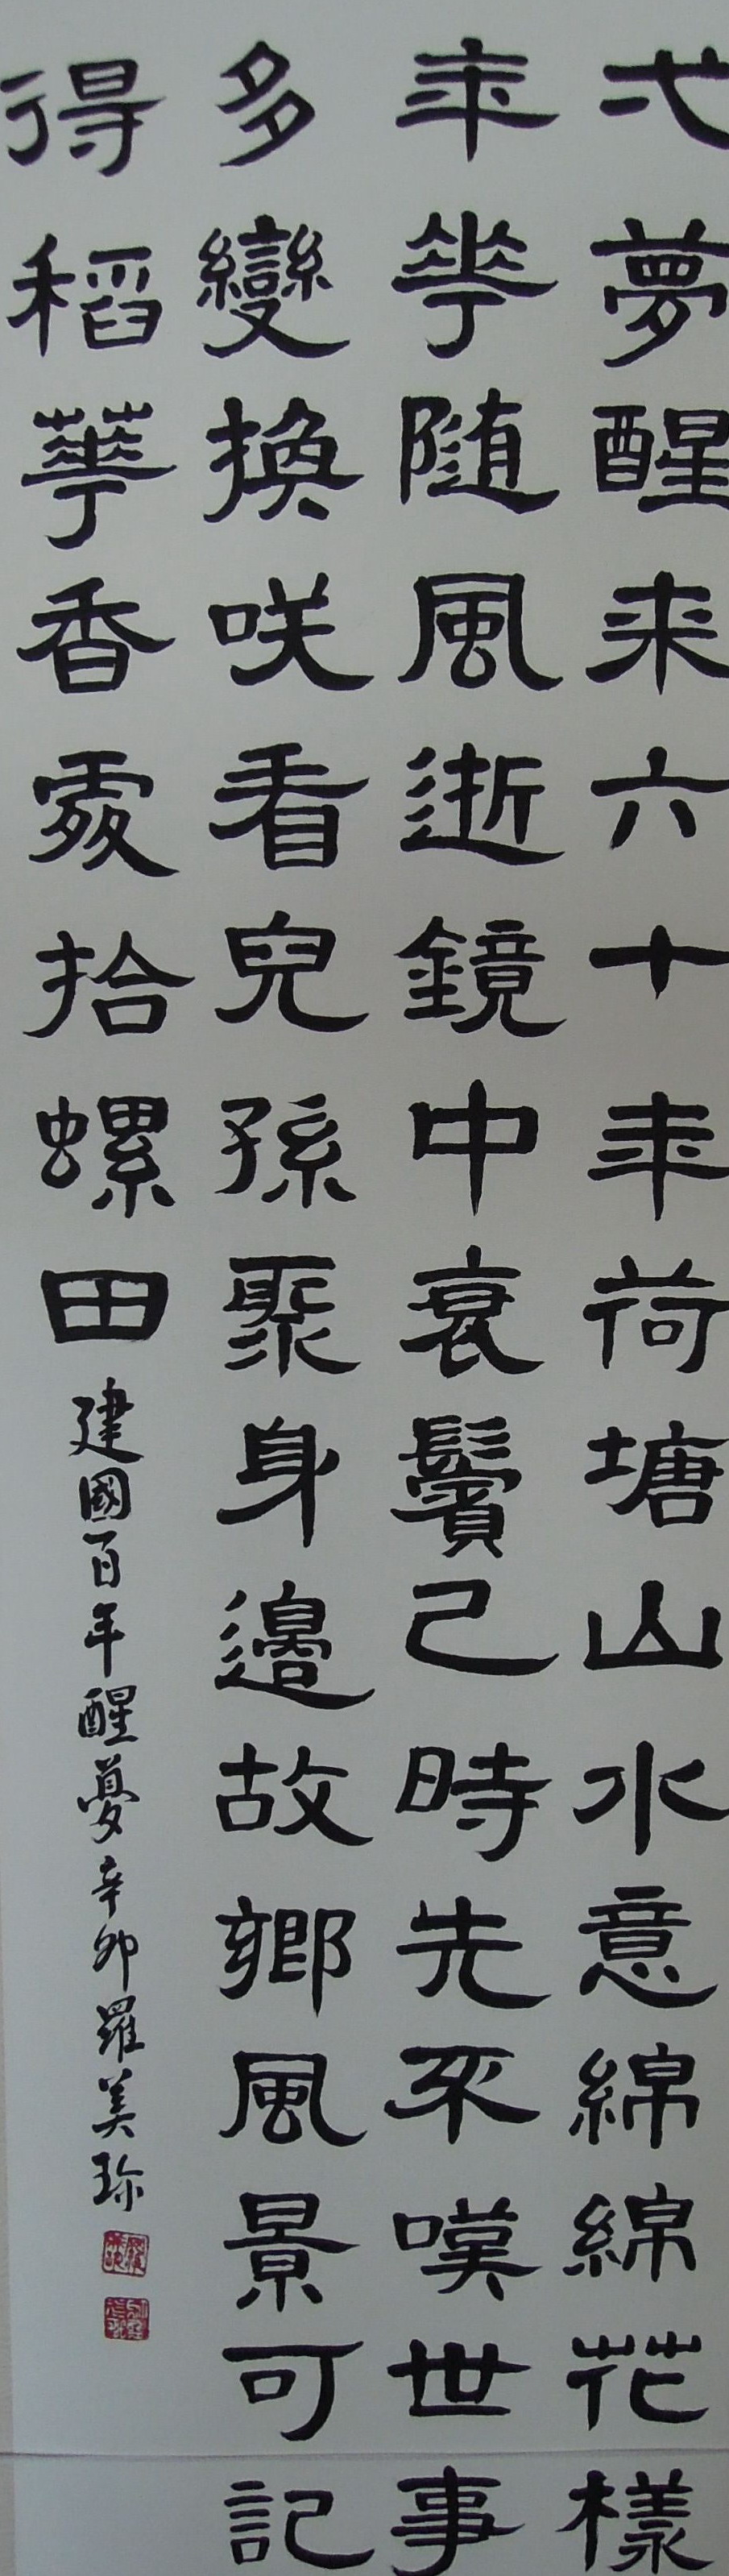 夢醒来六十年荷塘山水意綿綿花樣
年華随風逝鏡中衰鬢已時先不嘆世事
多變換咲看兒孫聚身邊故鄉風景可記
得稻華香處拾螺田
建國百年醒夢辛卯羅美珍